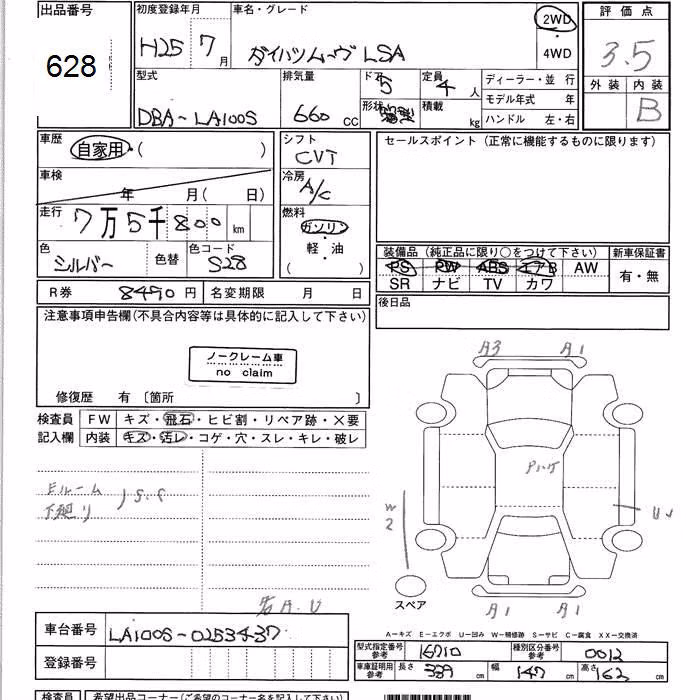 出品番号
628
初度登録年月
H25 7月
車名・グレード
ダイハツムーヴ LSA
2WD
・
4WD
評価点
3.5
外装 内装
B
型式
DBA-LA100S
排気量
660 cc
ドア
5
形状
定員
4 人
積載
kg
ディーラー・並 行
モデル年式 年
ハンドル 左・右
車歴
自家用・( )
車検
年 月( 日)
走行
7万5千800 km
色
シルバー
色替
色コード
S28
シフト
CVT
冷房
A/C
燃料
ガソリン
・
軽・油
( )
セールスポイント (正常に機能するものに限ります)
装備品 (純正品に限り○をつけて下さい)
新車保証書
PS PW ABS エアB AW
SR ナビ TV カワ
有・無
後日品
R券 8490円
名変期限 月 日
注意事項申告欄(不具合内容等は具体的に記入して下さい)
ノークレーム車
no claim
修復歴 有 〔箇所 〕
検査員
記入欄
FW キズ・飛石・ヒビ割・リペア跡・×要
内装 キズ・汚レ・コゲ・穴・スレ・キレ・破レ
Eルーム
下廻り
S.C
A.U
A3 A1
W2
A1 A1
スペア
A-キズ E-エクボ U-凹み W-補修跡 S-サビ C-腐食 XX-交換済
車台番号
LA100S-0253437
登録番号
型式指定番号
参考
16710
種別区分番号
参考
0012
車庫証明用
参考
長さ 339 cm
幅 147 cm
高さ 162 cm
検査員
希望出品コーナー(ご希望のコーナー名を記入して下さい)